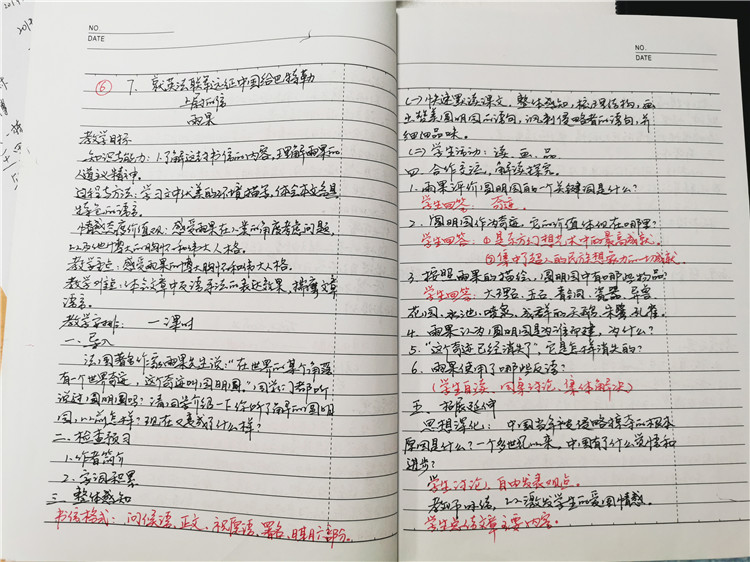 NO.
DATE
⑥ 7. 就英法联军远征中国给巴特勒
上尉的信
雨果
教学目标
知识与能力：1.了解这封书信的内容，理解雨果的
人道主义精神。
过程与方法：学习文中优美的环境描写，体会本文
生动的语言。
情感态度价值观：感受雨果在人类的角度考虑问题
以及他博大的胸怀和伟大人格。
教学重点：感受雨果的博大胸怀和伟大人格。
教学难点：体会文章中反语手法的表达效果，揣摩文章
语言。
教学安排：一课时
一、导入
法国著名作家雨果先生说："在世界的某个角落
有一个世界奇迹，这个奇迹叫圆明园。"同学们都听
说过圆明园吗？请同学介绍一下你所了解的圆明
园，以前怎样？现在又变成了什么样？
二、检查预习
1.作者简介
2.字词积累
三、整体感知
书信格式：问候语、正文、祝愿语、署名、日期六部分。
NO.
DATE
(一)快速默读课文，整体感知，梳理结构，画
出赞美圆明园的语句，讽刺侵略者的语句，并
细细品味。
(二)学生活动：读、画、品
四、合作交流，解读探究。
1.雨果评价圆明园的一个关键词是什么？
学生回答：奇迹。
2.圆明园作为奇迹，它的价值体现在哪里？
学生回答：①是东方幻想艺术中的最高成就。
②集中了超人的民族想象力的一切成就
3.按照雨果的描绘，圆明园中有哪些物品？
学生回答：大理石、玉石、青铜、瓷器、异兽、
花园、水池、喷泉、成群的天鹅、朱鹭、孔雀。
4.雨果认为圆明园是为谁所建，为什么？
5."这个奇迹已经消失了"，它是怎样消失的？
6.雨果使用了哪些反语？
(学生自读、同桌讨论、集体解决)
五、拓展延伸
思想深化：中国当年被侵略掠夺的根本
原因是什么？一个多世纪以来，中国有了什么觉悟和
进步？
学生讨论，自由发表观点。
教师小结，以激发学生的爱国情感。
学生总结文章主要内容。